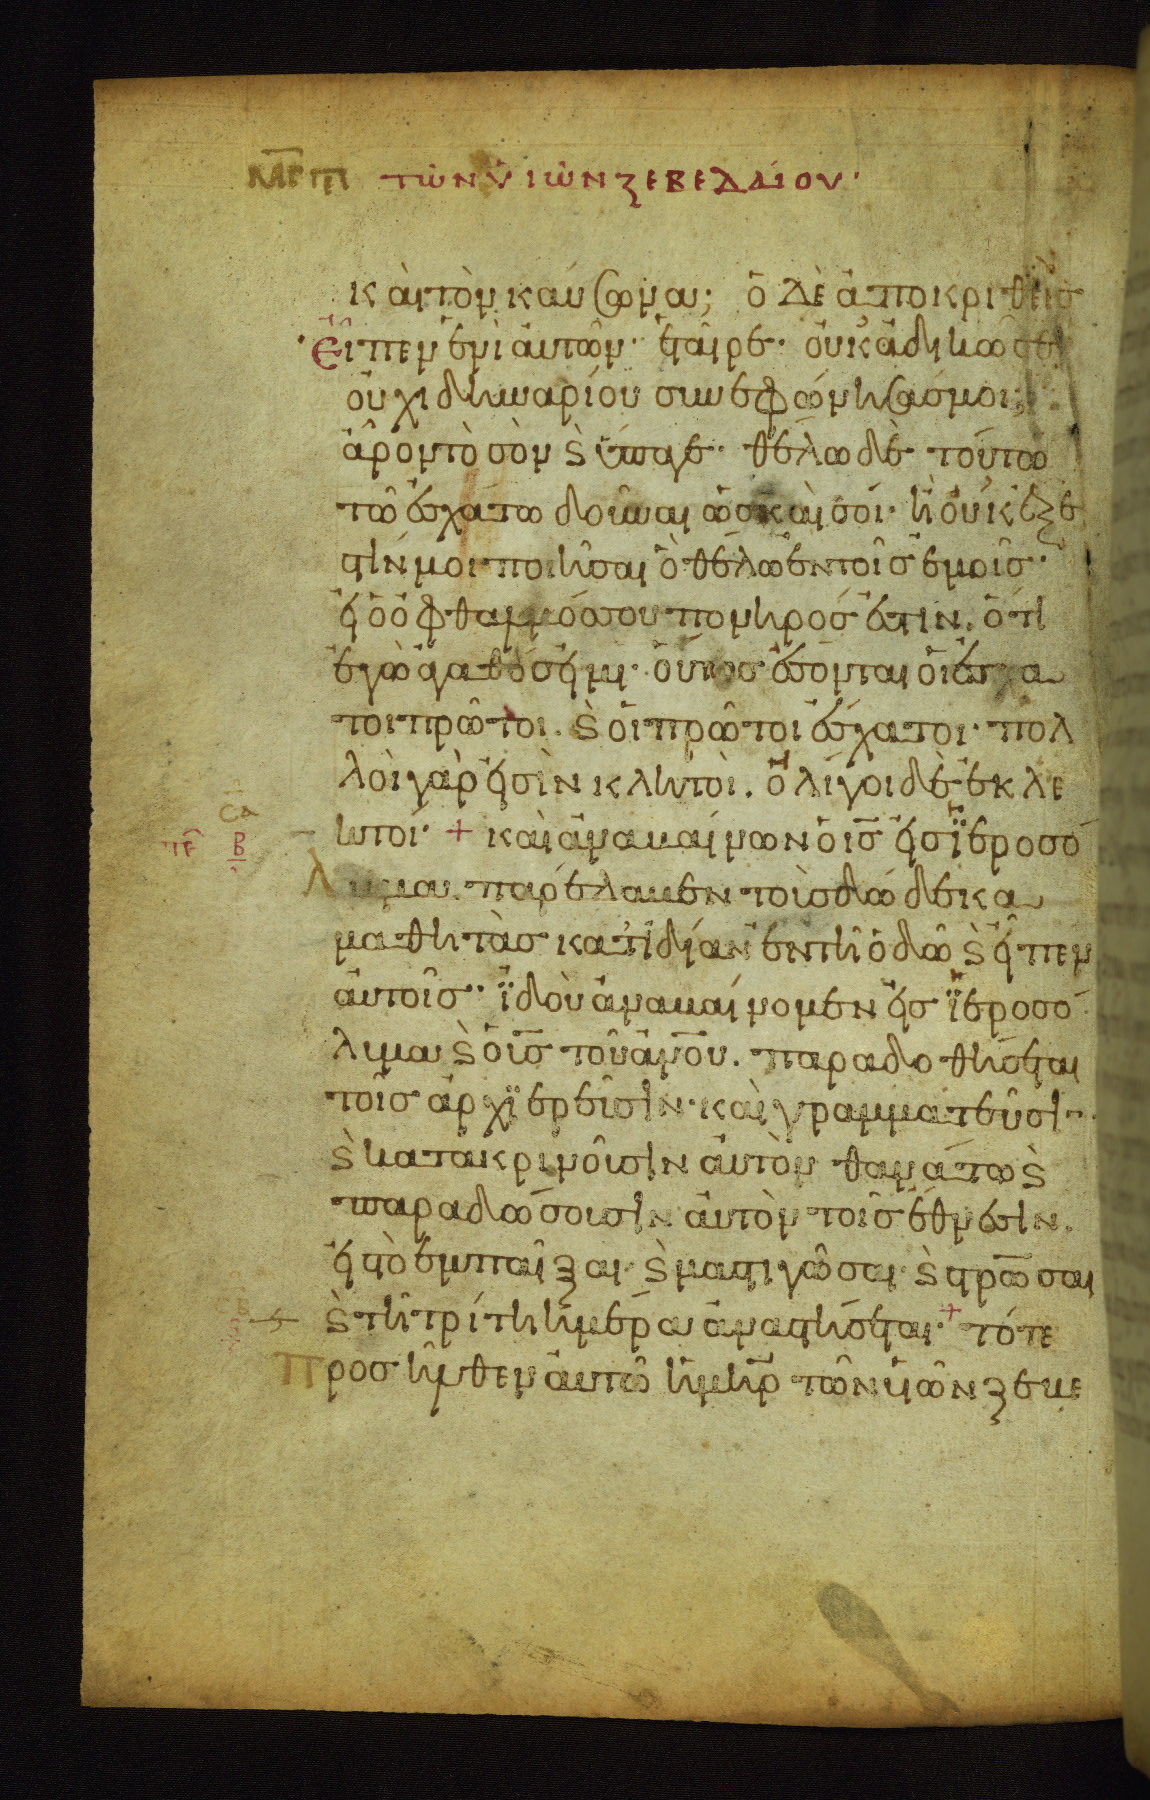 τῶν υἱῶν ζεβεδαίου·
καὶ τὸν καύσωνα; ὁ δὲ ἀποκριθεὶς
εἶπεν ἑνὶ αὐτῶν· ἑταῖρε· οὐκ ἀδικῶ σε
οὐχὶ δηναρίου συνεφώνησάς μοι;
ἆρον τὸ σὸν ϗ ὕπαγε· θέλω δὲ τούτω
τῶ ἐσχάτω δοῦναι ὡς καὶ σοί· ἢ οὐκ ἔξε
στιν μοι ποιῆσαι ὃ θέλω ἐν τοῖς ἐμοῖς·
εἰ ὁ ὀφθαλμός σου πονηρός ἐστιν. ὅτι
ἐγὼ ἀγαθός εἰμι· οὕτως ἔσονται οἱ ἔσχα
τοι πρῶτοι. ϗ οἱ πρῶτοι ἔσχατοι· πολ
λοὶ γάρ εἰσὶν κλητοὶ. ὀλίγοι δὲ ἐκλε
κτοί· + καὶ ἀναβαίνων ὁ ις εἰς ἱεροσό
λυμα. παρέλαβεν τοὺς δώδεκα
μαθητὰς κατιδίαν ἐν τῆ ὁδῶ ϗ εἶπεν
αὐτοῖς· ἰδοὺ ἀναβαίνομεν εἰς ἱεροσό
λυμα ϗ ὁ υς τοῦ ανου. παραδοθήσεται
τοῖς ἀρχιερεῦσιν· καὶ γραμματεῦσι·
ϗ κατακρινοῦσιν αὐτὸν θανάτω ϗ
παραδώσουσιν αὐτὸν τοῖς ἔθνεσιν.
εἰς τὸ ἐμπαῖξαι· ϗ μαστιγῶσαι· ϗ στρωσαι
ϗ τῆ τρίτη ἡμέρα ἀναστήσεται· + τότε
προσῆλθεν αὐτῶ ἡ μηρ τῶν υἱῶν ζεβε